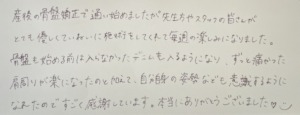 産後の骨盤矯正で通い始めましたが先生方やスタッフの皆さんが
とても優しくていねいに施術もしてくれて毎週の楽しみになりました。
骨盤も始める前は入らなかったデニムも入るようになり、ずっと痛かった
肩周りが楽になったのと加えて、自分自身の姿勢なども意識するように
なれたのですごく感謝しています。本当にありがとうございました